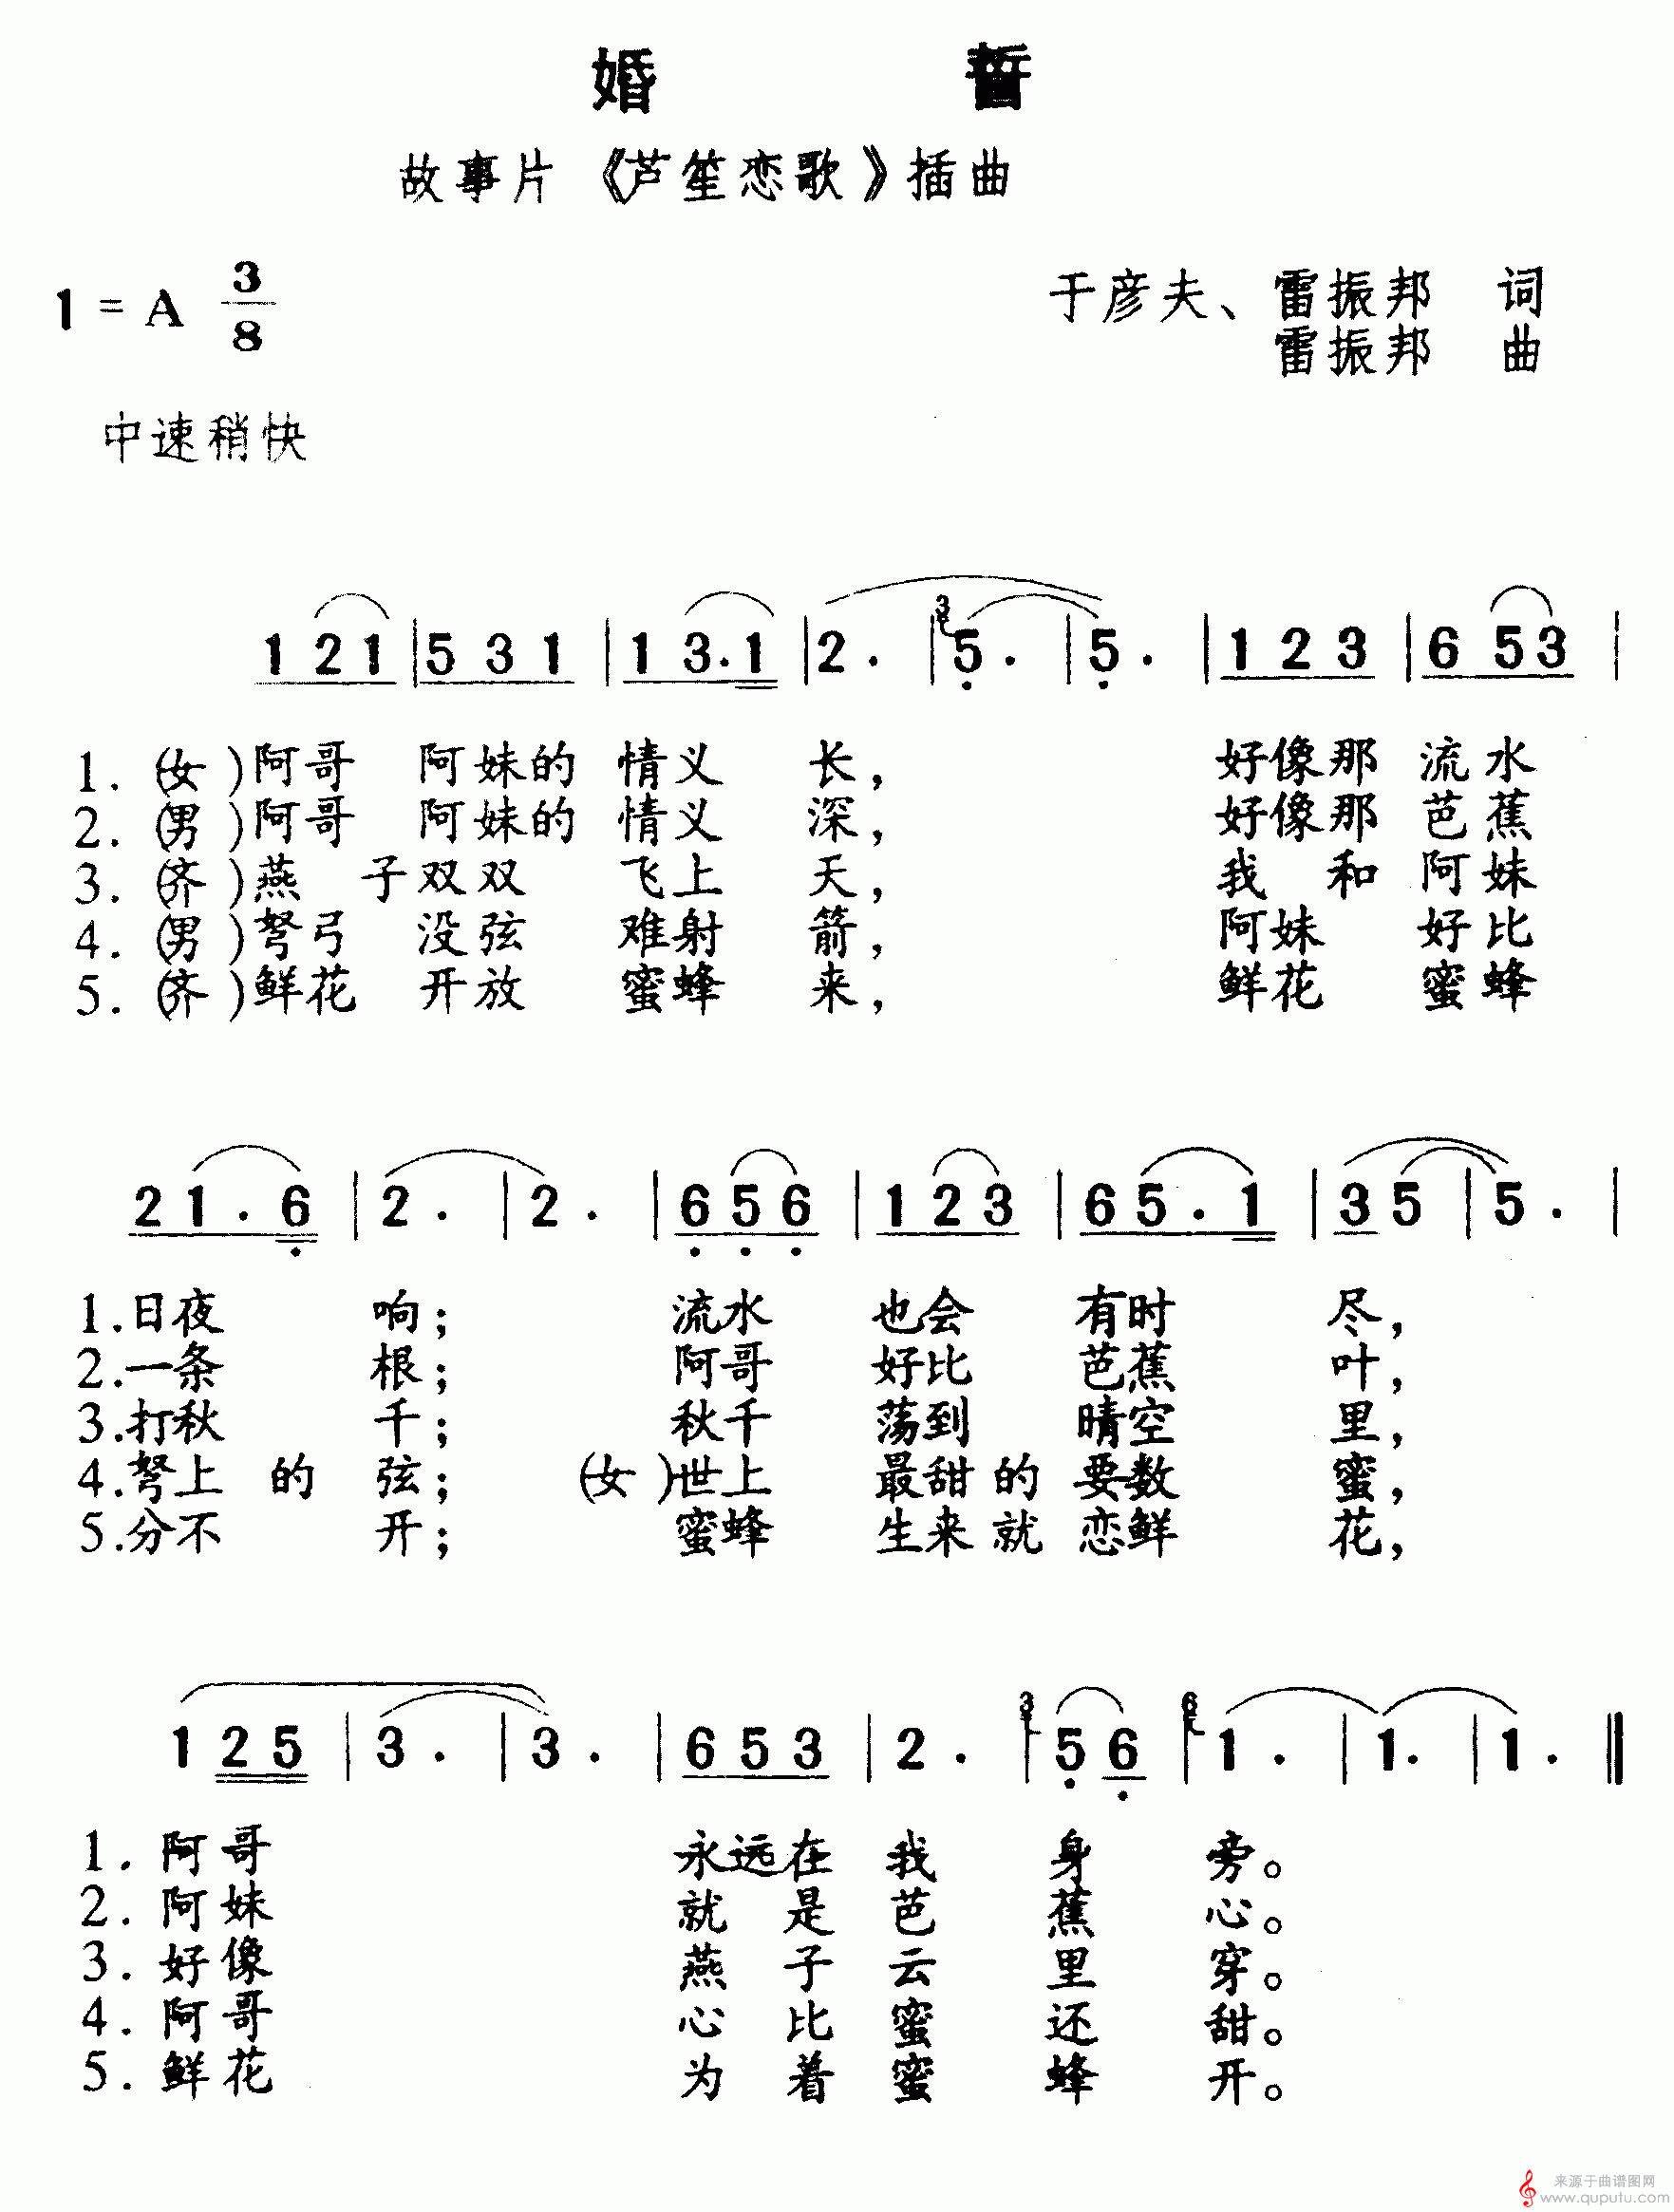 婚 誓
故事片《芦笙恋歌》插曲
1 = A 3/8
于彦夫、雷振邦 词
雷振邦 曲
中速稍快
1 2 1 | 5 3 1 | 1 3. 1 | 2 . | 3 5 . | 5 . | 1 2 3 | 6 5 3 |
1. (女)阿哥 阿妹的 情义 长, 好像那 流水
2. (男)阿哥 阿妹的 情义 深, 好像那 芭蕉
3. (齐)燕 子双双 飞上 天, 我 和 阿妹
4. (男)弩弓 没弦 难射 箭, 阿妹 好比
5. (齐)鲜花 开放 蜜蜂 来, 鲜花 蜜蜂
2 1 . 6 | 2 . | 2 . | 6 5 6 | 1 2 3 | 6 5 . 1 | 3 5 | 5 . |
1.日夜 响; 流水 也会 有时 尽,
2.一条 根; 阿哥 好比 芭蕉 叶,
3.打秋 千; 秋千 荡到 晴空 里,
4.弩上 的 弦; (女)世上 最甜的 要数 蜜,
5.分不 开; 蜜蜂 生来就 恋鲜 花,
1 2 5 | 3 . | 3 . | 6 5 3 | 2 . | 3 5 6 | 6 1 . | 1 . | 1 . ‖
1. 阿哥 永远在 我 身 旁。
2. 阿妹 就 是 芭 蕉 心。
3. 好像 燕 子 云 里 穿。
4. 阿哥 心 比 蜜 还 甜。
5. 鲜花 为 着 蜜 蜂 开。
来源于曲谱图网
www.quputu.com